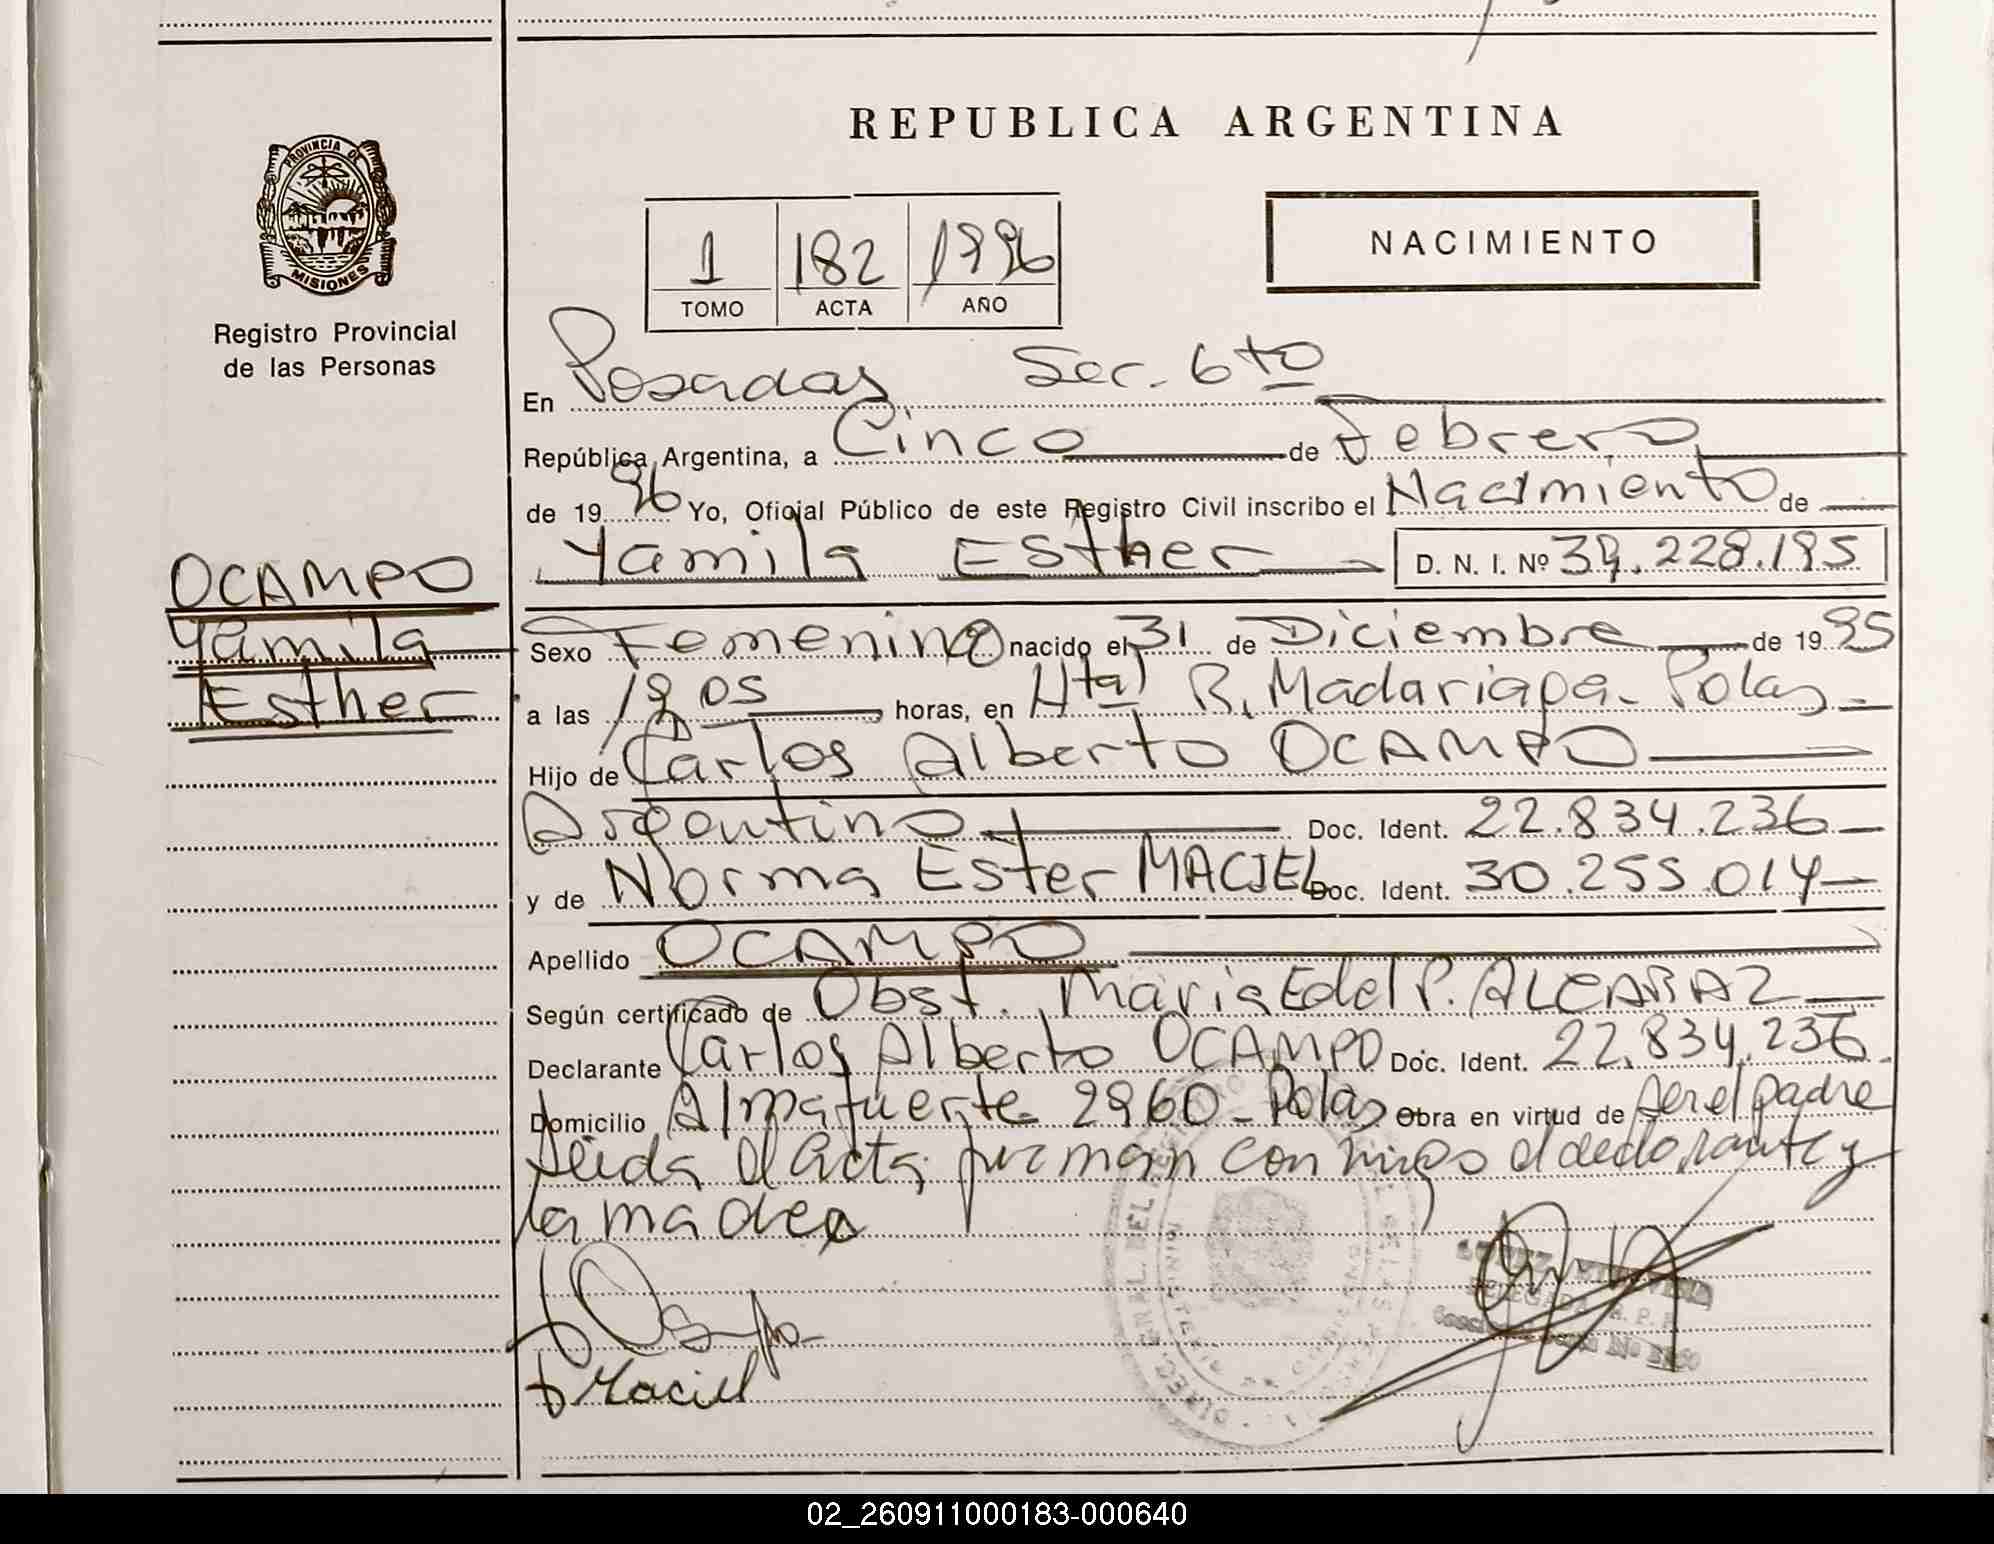 REPUBLICA ARGENTINA
PROVINCIA DE
MISIONES
Registro Provincial
de las Personas
1 182 1996
TOMO ACTA AÑO
NACIMIENTO
En Posadas Sec. 6to
República Argentina, a Cinco de Febrero
de 19 96 Yo, Oficial Público de este Registro Civil inscribo el Nacimiento de
Yamila Esther D. N. I. Nº 39.228.195
OCAMPO
Yamila
Esther
Sexo Femenino nacido el 31 de Diciembre de 19 95
a las 19 05 horas, en Htal R. Madariaga - Pdas
Hijo de Carlos Alberto OCAMPO
Argentino Doc. Ident. 22.834.236
y de Norma Ester MACIEL Doc. Ident. 30.255.014
Apellido OCAMPO
Según certificado de Obst. Maria E del P. ALCARAZ
Declarante Carlos Alberto OCAMPO Doc. Ident. 22.834.236
Domicilio Almafuerte 2960 - Pdas Obra en virtud de ser el padre
Leida el acta firman con migo el declarante y
la madre
Maciel
DELEGADA R. P. P.
02_260911000183-000640